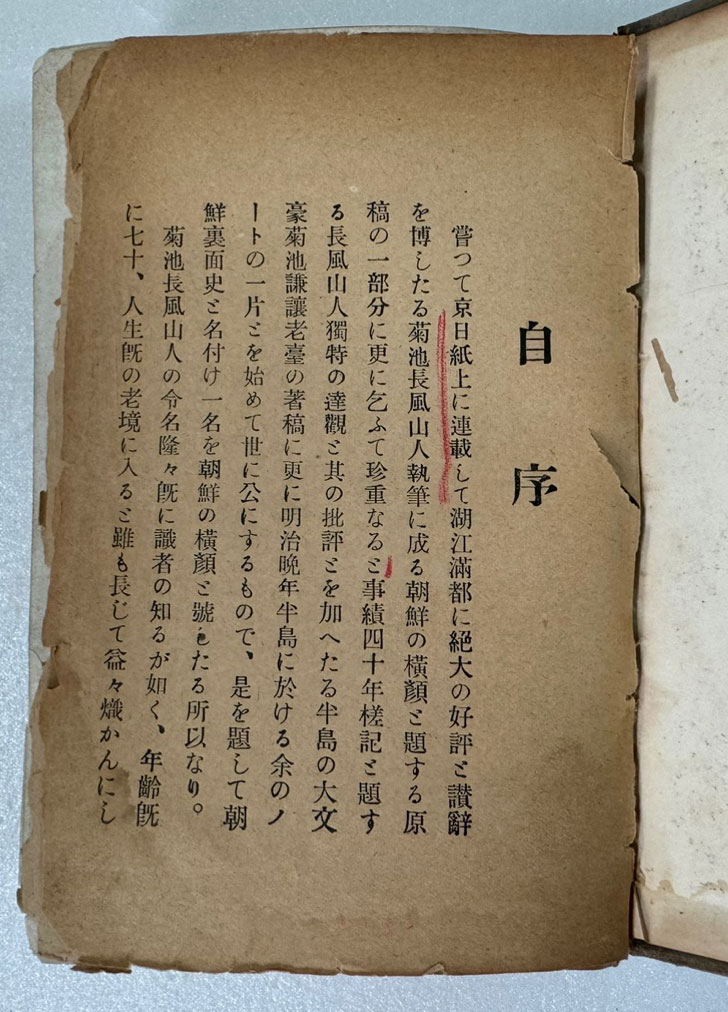 自序
嘗つて京日紙上に連載して湖江滿都に絕大の好評と讃辭
を博したる菊池長風山人執筆に成る朝鮮の橫顏と題する原
稿の一部分に更に乞ふて珍重なると事績四十年槎記と題す
る長風山人獨特の達觀と其の批評とを加へたる半島の大文
豪菊池謙讓老臺の著稿に更に明治晩年半島に於ける余のノ
ートの一片とを始めて世に公にするもので、是を題して朝
鮮裏面史と名付け一名を朝鮮の橫顏と號したる所以なり。
菊池長風山人の令名隆々旣に識者の知るが如く、年齡旣
に七十、人生旣の老境に入ると雖も長じて益々熾かんにし